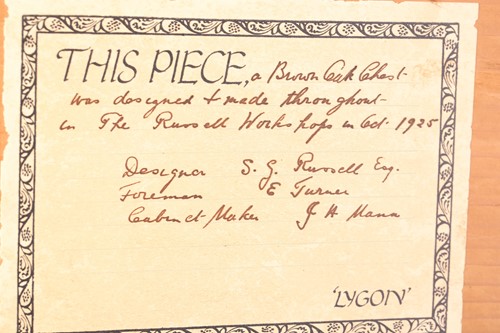 THIS PIECE, a Brown Oak Chest
was designed & made throughout
in The Russell Workshops in Oct. 1925
Designer S. G. Russell Esq.
Foreman E Turner
Cabinet Maker J H Mann
'LYGON'